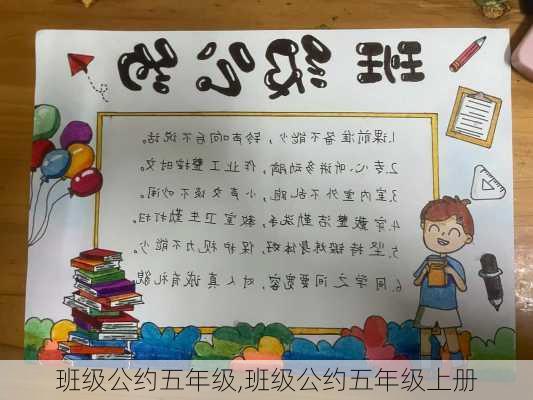 班级公约
1.课前准备不能少，铃声响后不说话。
2.专心听讲多动脑，作业工整按时交。
3.室内室外不乱跑，小声交谈不吵闹。
4.穿戴整洁勤洗手，教室卫生勤打扫。
5.坚持锻炼身体好，保护视力不能少。
6.同学之间要宽容，对人真诚有礼貌。
班级公约五年级,班级公约五年级上册